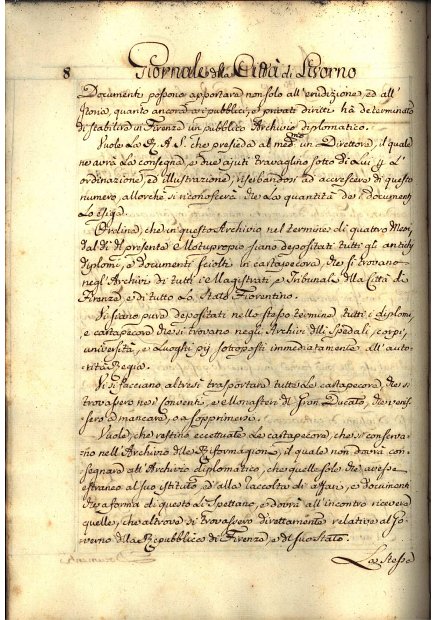 8 Giornale della Città di Livorno
Documenti possono apportare non solo all'erudizione, ed all'
Istoria, quanto ancora a i pubblici, e privati diritti ha determinato
di stabilire in Firenze un pubblico Archivio diplomatico.
Vuole la R. A. S. che presieda al med.mo un Direttore, il quale
ne avrà la consegna, e due ajuti travaglino sotto di Lui p. l'
ordinazione, ed illustrazione, riserbandosi ad accrescere di questo
numero, allorchè si riconoscerà che la quantità dei documenti
Lo esiga.
Ordina, che in questo Archivio nel termine di quattro Mesi,
dal dì del presente Motuproprio siano depositati tutti gli antichi
diplomi, e documenti sciolti in cartapecora, che si trovano
negl'Archivi di tutti i Magistrati, e Tribunale della Città di
Firenze, e di tutto lo Stato Fiorentino.
Vi siano pure depositati nello stesso termine tutti i diplomi,
e cartapecore che si trovano negli Archivi delli Spedali, corpi,
università, e Luoghi pij sottoposti immediatamente all'auto-
rità Regia.
Vi si facciano altresì trasportare tutte le cartapecore, che si
trovassero nei conventi, e Monasteri del Gran Ducato, che venis-
sero a mancare, o a sopprimersi.
Vuole, che restino eccettuate le cartapecore, che si conserva-
no nell'Archivio delle Riformagioni, il quale non dovrà con-
segnare all'Archivio diplomatico, che quelle sole che avesse
estraneo al suo istituto, e alla raccolta di affari, e documenti
che a forma di questo li spettano, e dovrà all'incontro ricevere
quelle, che altrove si trovassero direttamente relative al Go-
verno della Repubblica di Firenze, e del suo Stato.
La stessa